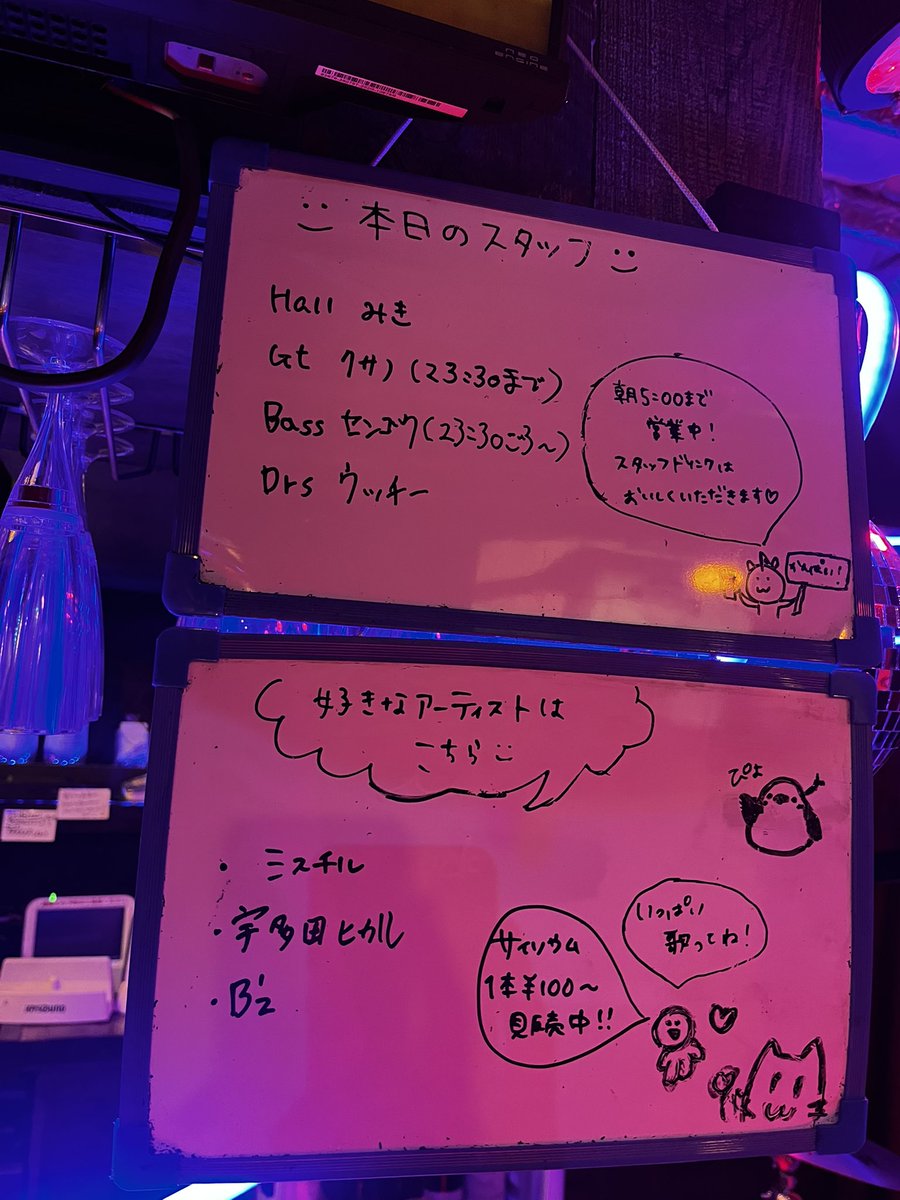 neo
engine
本日のスタッフ
Hall みき
Gt クサノ (23:30まで)
Bass センゴク(23:30ごろ〜)
Drs ウッチー
朝5:00まで
営業中!
スタッフドリンクは
おいしくいただきます♡
かんぱい!
好きなアーティストは
こちら
ぴよ
・ミスチル
・宇多田ヒカル
・B'z
いっぱい
歌ってね!
サイリウム
1本¥100〜
販売中!!